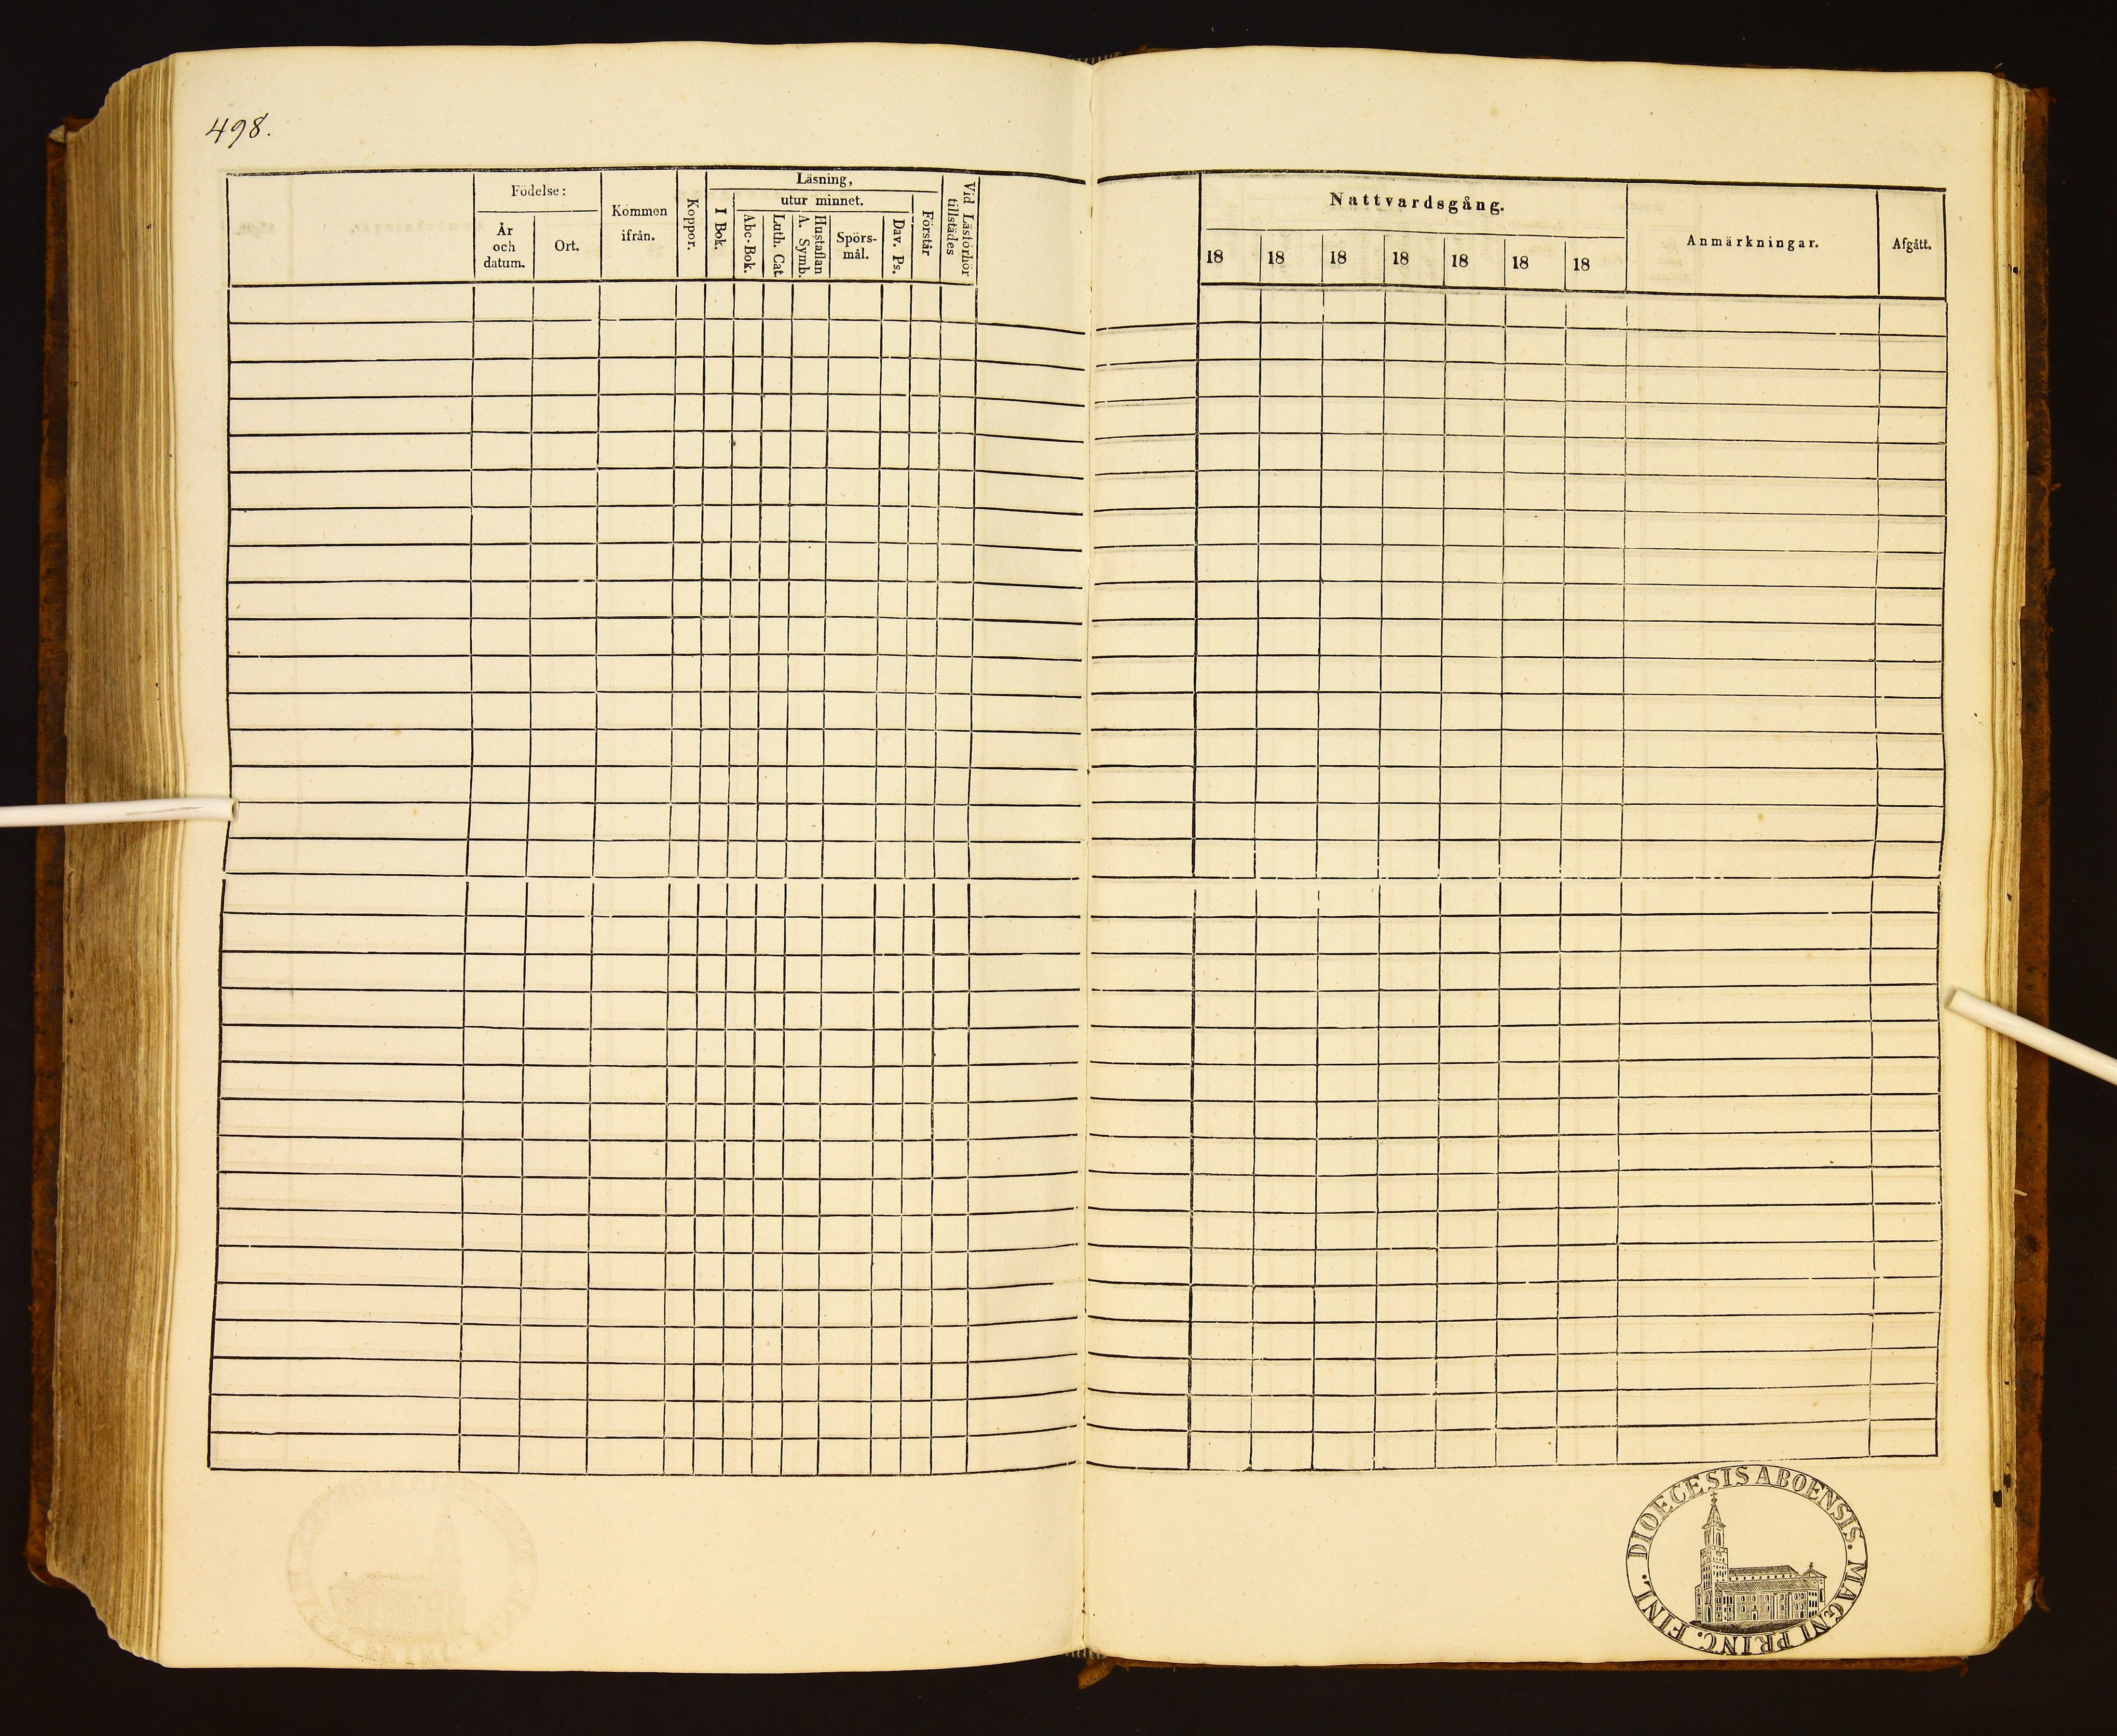 498.
Födelse:
År
och
datum.
Ort.
Kommen
ifrån.
Koppor.
Läsning,
I Bok.
utur minnet.
Abc-Bok.
Luth. Cat.
Hustaflan
A. Symb.
Spörs-
mål.
Dav. Ps.
Förstår
Vid Läsförhör
tillstädes
Nattvardsgång.
18 18 18 18 18 18 18
Anmärkningar.
Afgått.
DIOECESIS ABOENSIS. MAGNI PRINC. FINI.